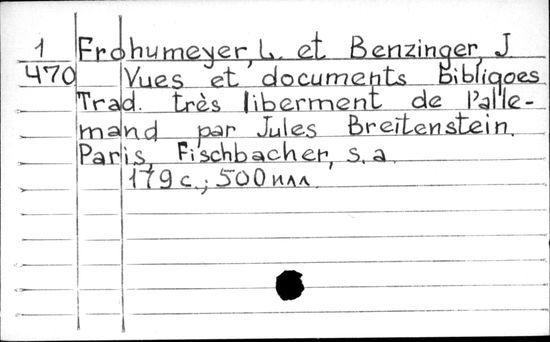 1 Frohumeyer, L. et Benzinger, J
470 Vues et documents Bibliqoes
Trad. très liberment de l'alle-
mand par Jules Breitenstein.
Paris, Fischbacher, s.a.
179 c.; 500 илл.